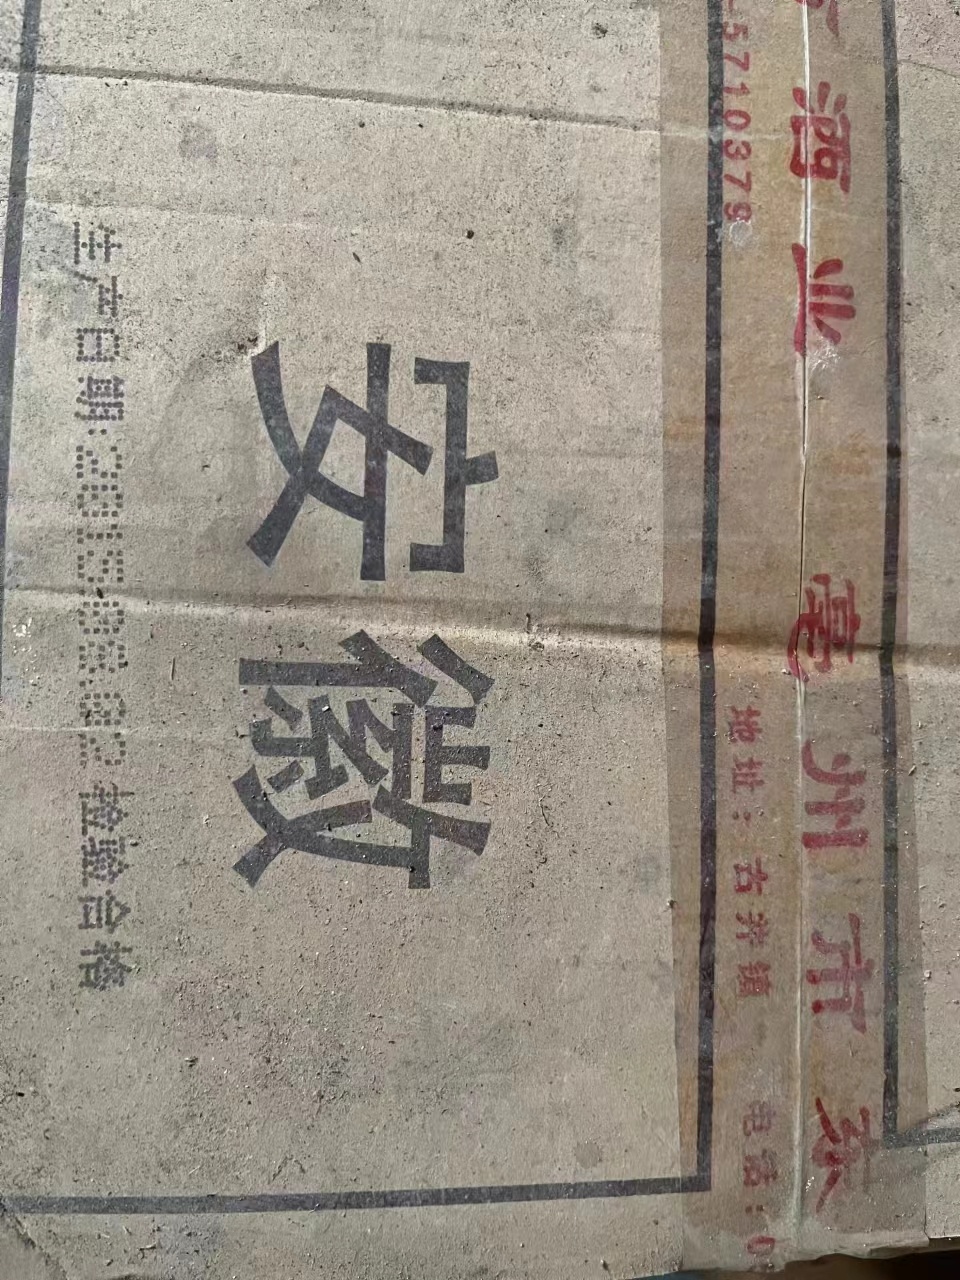 酒业 亳州市
5710379 地址:古井镇 电话:0
安徽
生产日期:2015.08.02 检验合格